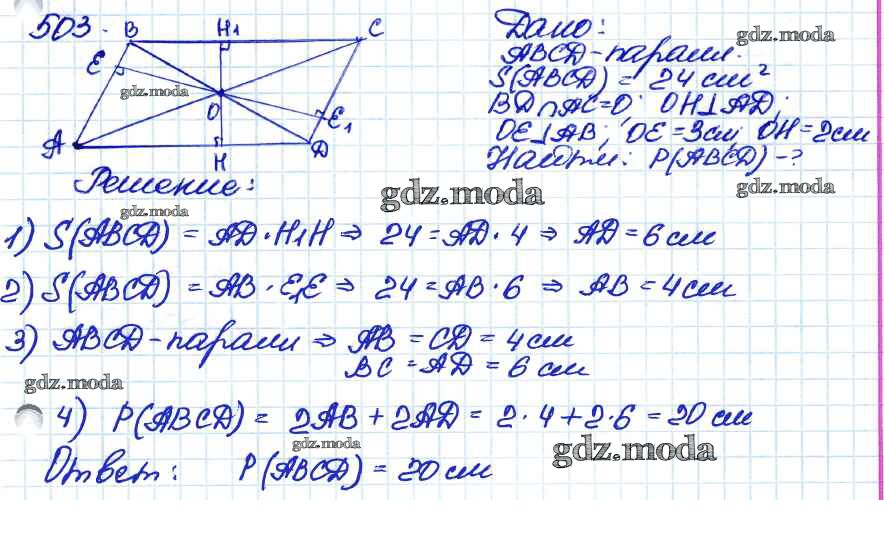 503.
B H1 C
E
O
E1
A H D
Дано:
ABCD-парал.
S(ABCD) = 24 см²
BD∩AC=O; OH⊥AD;
OE⊥AB; OE=3см; OH=2см
Найти: P(ABCD)-?
Решение:
1) S(ABCD) = AD·H1H ⇒ 24=AD·4 ⇒ AD=6см
2) S(ABCD) = AB·E1E ⇒ 24=AB·6 ⇒ AB=4см
3) ABCD-паралл ⇒ AB = CD = 4см
BC = AD = 6 см
4) P(ABCD) = 2AB+2AD = 2·4+2·6 = 20см
Ответ: P(ABCD) = 20см
gdz.moda
gdz.moda
gdz.moda
gdz.moda
gdz.moda
gdz.moda
gdz.moda
gdz.moda